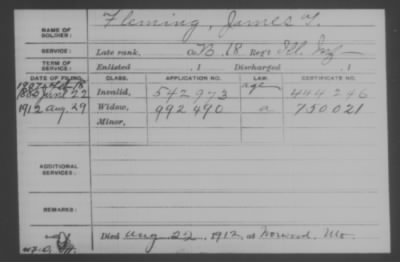 Fleming, James T.
NAME OF SOLDIER:
SERVICE:
Late rank, Co B, 18 Reg't Ill. Inf
TERM OF SERVICE:
Enlisted , 1 Discharged , 1
DATE OF FILING. CLASS. APPLICATION NO. LAW. CERTIFICATE NO.
1880 June 22 Invalid, 542973 444246
1912 Aug. 29 Widow, 992490 a 750021
Minor,
ADDITIONAL SERVICES:
REMARKS:
Died Aug 22, 1912, at Norwood, Mo.